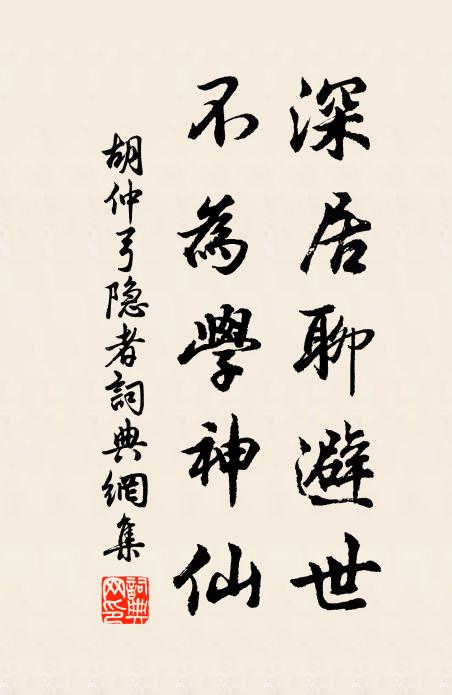 深居聊避世
不為學神仙
胡仲弓隐者詞典網集
詞典网印